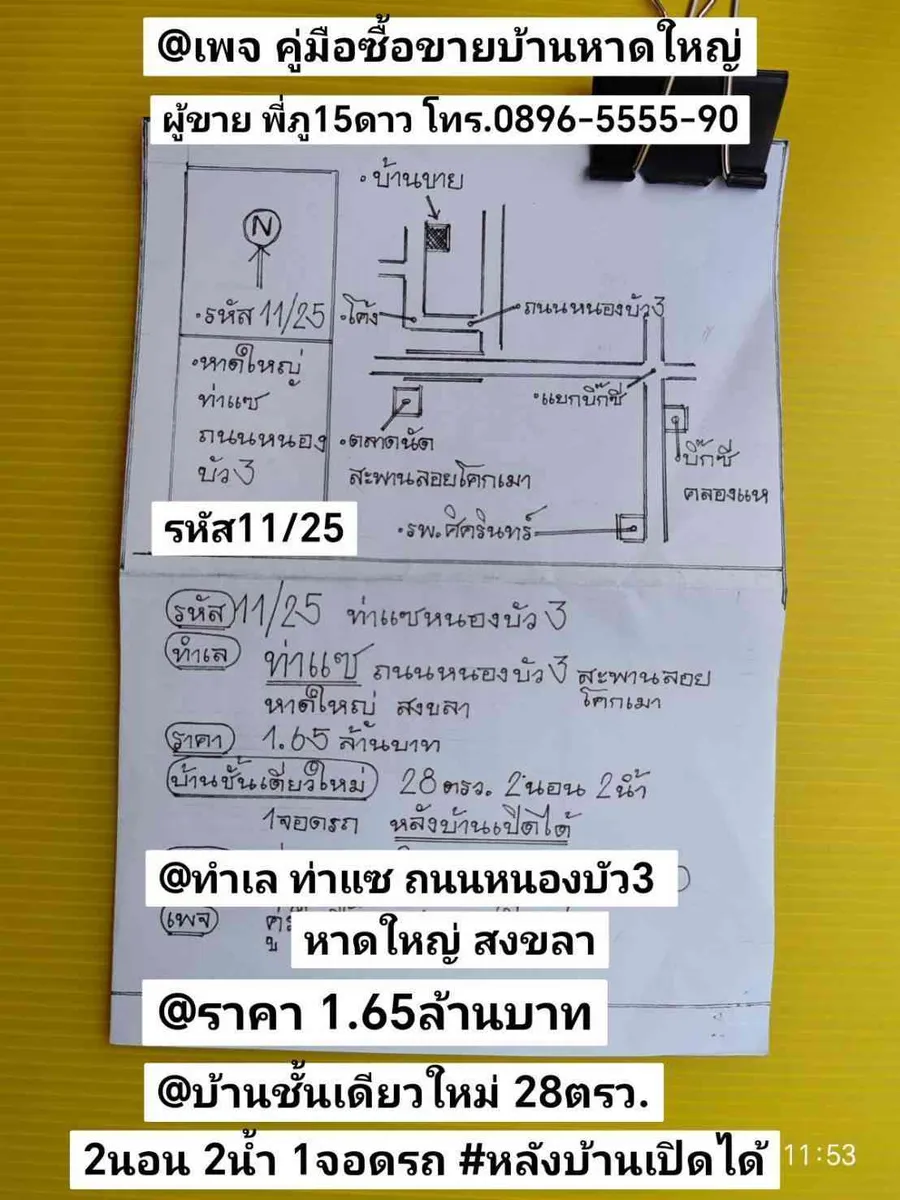 @เพจ คู่มือซื้อขายบ้านหาดใหญ่
ผู้ขาย พี่ภู15ดาว โทร.0896-5555-90
บ้านขาย
N
รหัส 11/25
โค้ง
ถนนหนองบัว 3
หาดใหญ่
ท่าแซ
ถนนหนอง
บัว 3
แยกบิ๊กซี
ตลาดนัด
สะพานลอยโคกเมา
บิ๊กซี
คลองแห
รพ.ศิครินทร์
รหัส11/25
รหัส 11/25 ท่าแซหนองบัว 3
ทำเล ท่าแซ ถนนหนองบัว 3 สะพานลอย
หาดใหญ่ สงขลา โคกเมา
ราคา 1.65 ล้านบาท
บ้านชั้นเดียวใหม่ 28 ตรว. 2นอน 2น้ำ
1จอดรถ หลังบ้านเปิดได้
@ทำเล ท่าแซ ถนนหนองบัว3
เพจ
หาดใหญ่ สงขลา
@ราคา 1.65ล้านบาท
@บ้านชั้นเดียวใหม่ 28ตรว.
2นอน 2น้ำ 1จอดรถ #หลังบ้านเปิดได้
11:53